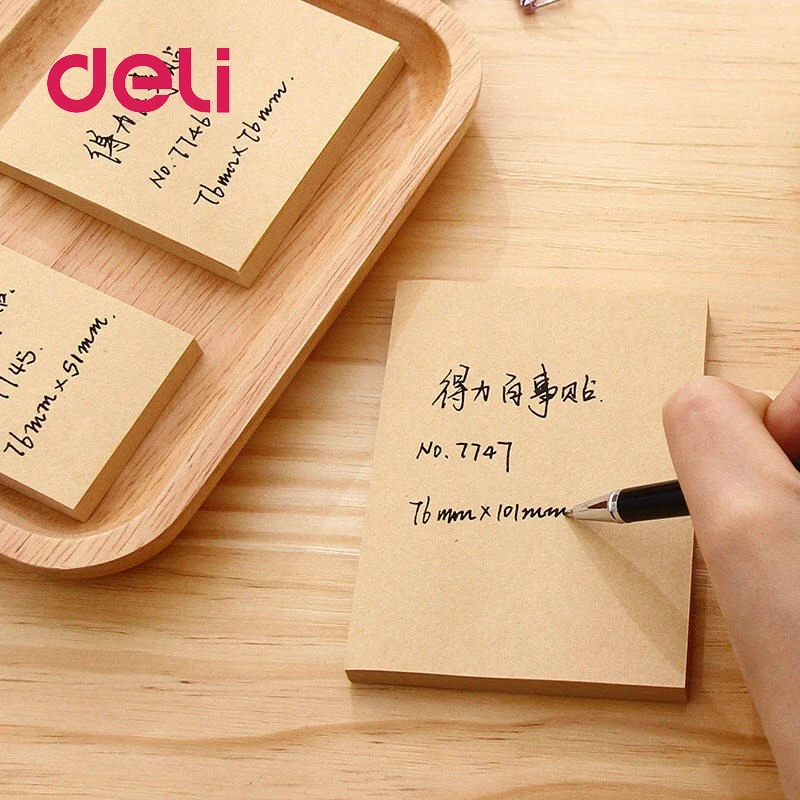 deli
得力
No. 7746
76mm×76mm.
7745.
76mm×51mm.
得力百事贴.
No. 7747
76mm×101mm